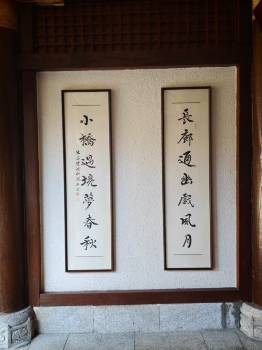 長廊通幽戲風月
小橋過境夢春秋